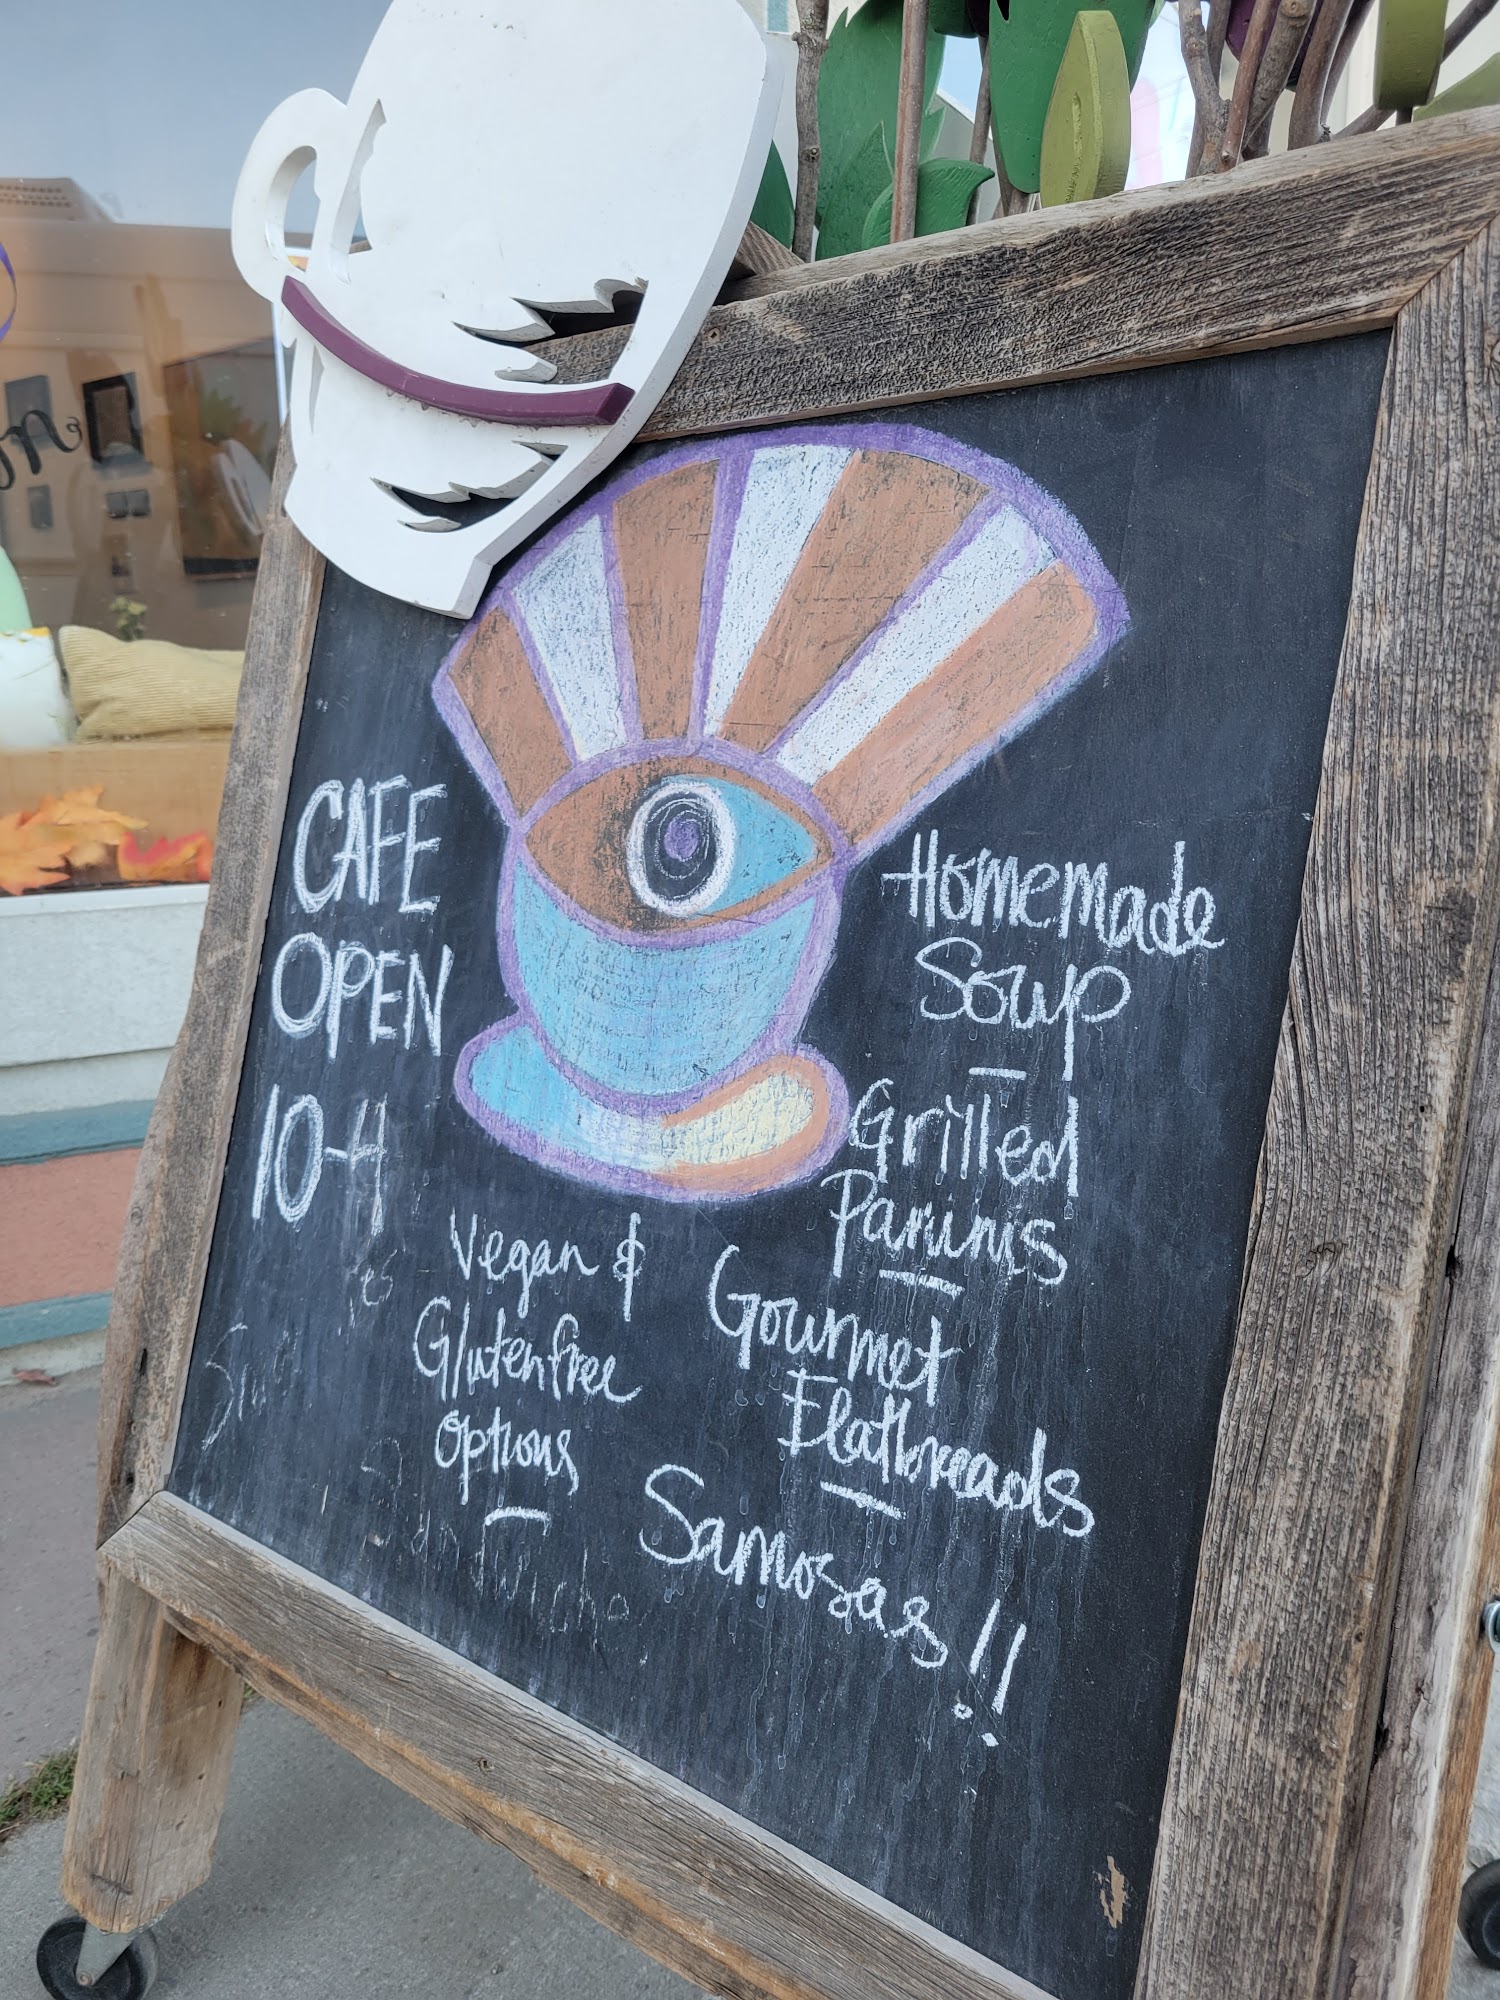 CAFE
OPEN
10-4
Homemade
Soup
Grilled
Paninis
Vegan &
Glutenfree
Options
Gourmet
Flatbreads
Samosas!!